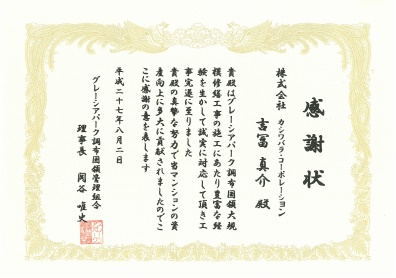 感謝状
株式会社 カシワバラ・コーポレーション
吉冨 真介 殿
貴殿はグレーシアパーク調布国領大規
模修繕工事の施工にあたり豊富な経
験を生かして誠実に対応して頂き工
事完遂に至りました
貴殿の真摯な努力で当マンションの資
産向上に多大に貢献されましたのでこ
こに感謝の意を表します
平成二十七年八月二日
グレーシアパーク調布国領管理組合
理事長 関谷 唯史